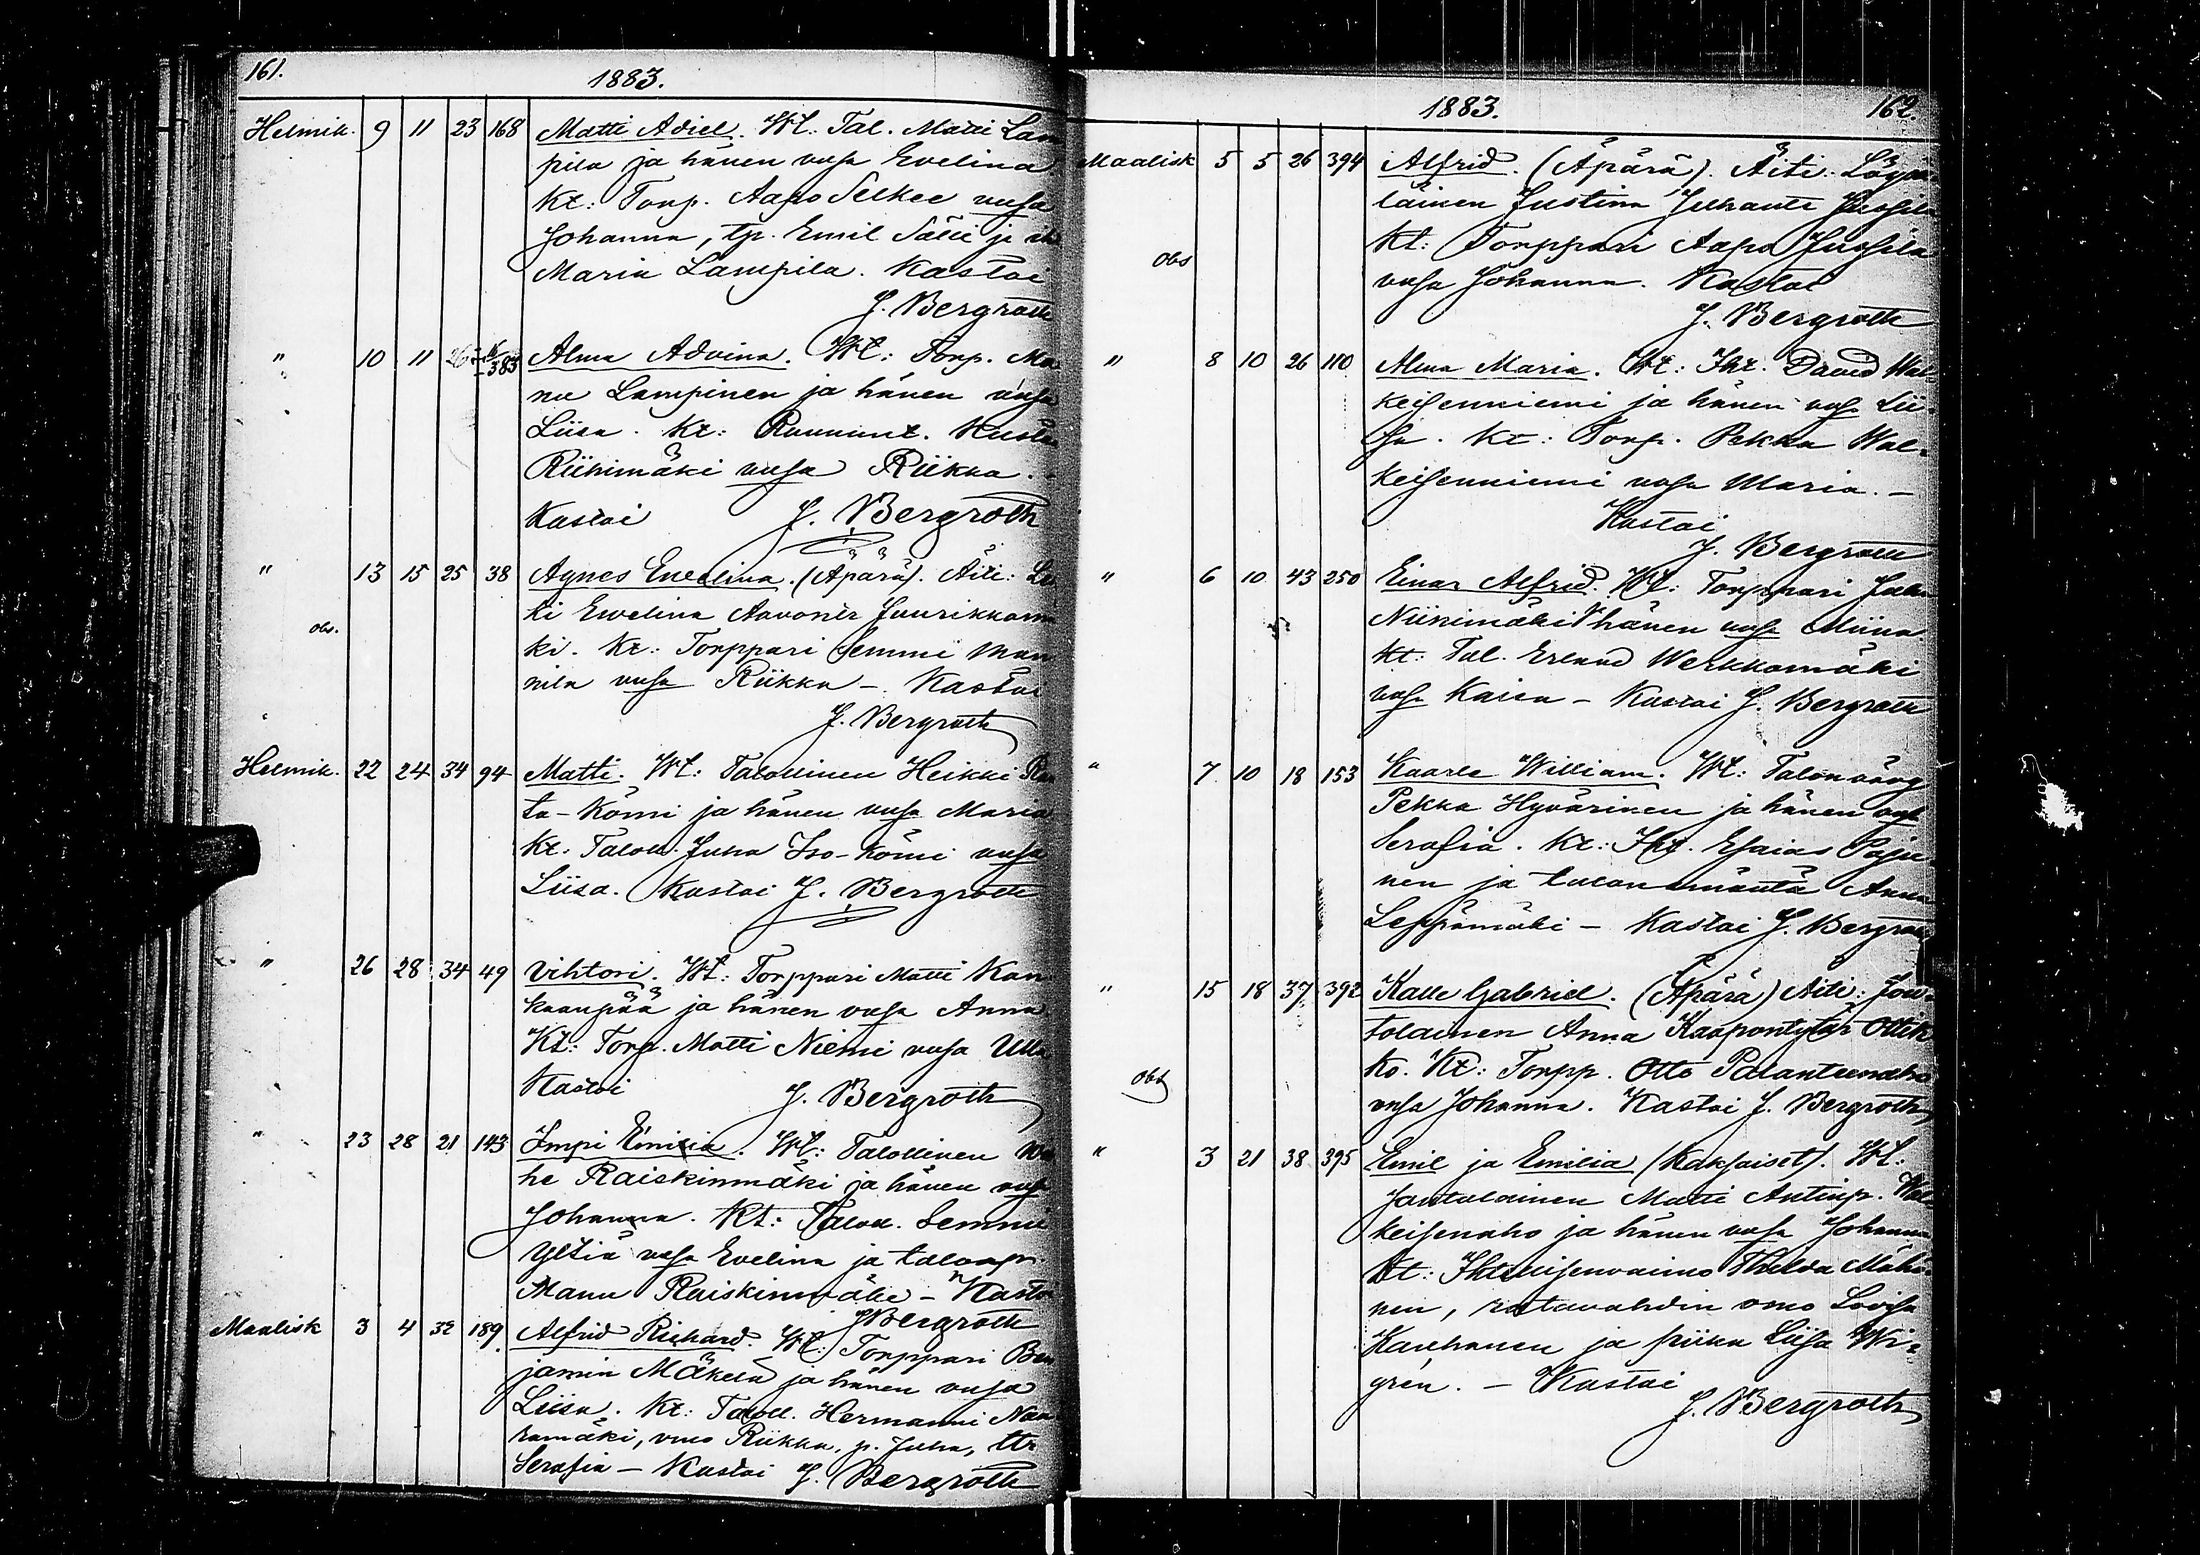 161.
1883.
Helmik. 9 11 23 168 Matti Adiel. Wt: Tal. Matti Lam
pila ja hänen vaiſa Evelina
Kt: Torp. Aapo Selkee vaiſa
Johanna, tp. Emil Sälli ja
Maria Lampila. Kastoi
J. Bergroth
" 10 11 26 383 Alma Advina. Wt: Torp. Ma
nu Lampinen ja hänen vaiſa
Liisa. Kt: Ruununt. Kusta
Riihimäki vaiſa Riikka.
Kastoi J. Bergroth
" 13 15 25 38 Agnes Eveelina. (Äpärä). Äiti:
ti Ewelina Aavontr Juurikkamä
obs.
ki. Kt: Torppari Semmi Man
nila vaiſa Riikka – Kastoi
J. Bergroth
Helmik. 22 24 34 94 Matti. Wt: Talollinen Heikki
ta-Kömi ja hänen vaiſa Maria
Kt: Taloll. Juha Iso-Kömi vaiſa
Liisa. Kastoi J. Bergroth
" 26 28 34 49 Vihtori. Wt: Torppari Matti Kan
kaanpää ja hänen vaiſa Anna
Kt: Torp. Matti Niemi vaiſa Ulla
Kastoi J. Bergroth
" 23 28 21 143 Impi Emilia. Wt: Talollinen
he Raiskinmäki ja hänen vaiſa
Johanna. Kt: Taloll. Semmi
Yltiä vaiſa Evelina ja talonp.
Manu Raiskinmäke – Kastoi
J Bergroth
Maalisk 3 4 32 189 Alfrid Richard. Wt: Torppari Ben
jamin Mäkelä ja hänen vaiſa
Liisa. Kt: Taloll. Hermanni
ramäki, vmo Riikka, p. Juha, ttr
Serafia – Kastoi J. Bergroth
1883. 162.
Maalisk 5 5 26 394 Alfrid. (Äpärä). Äiti:
läinen Justina Juſsila
Kt: Torppari Aapo Juſsila
obs
vaiſa Johanna. Kastoi
J. Bergroth
" 8 10 26 110 Alma Maria. Wt: Iht. David Wal-
keiſenniemi ja hänen vaiſa Lii-
ſa. Kt: Torp. Pekka Wal-
keiſenniemi vaiſa Maria. –
Kastoi
J. Bergroth
" 6 10 43 250 Einar Alfrid. Wt: Torppari Juha
Niinimäki hänen vaiſa Miina
Kt: Tal. Erland Werkkomäki
vaiſa Kaisa – Kastoi J. Bergroth
" 7 10 18 153 Kaarle William. Wt: Talonväug
Pekka Hyvärinen ja hänen vaiſa
Serafia. Kt: Iht. Eſaias Paju
nen ja talonemäntä Anna
Leppämäki – Kastoi J. Bergroth
" 15 18 37 392 Kalle Gabriel. (Äpärä) Äiti: Jou-
tolainen Anna Kaapontytär Ottik
ko. Kt: Torpp. Otto Palantunaho
obs
vaiſa Johanna. Kastoi J. Bergroth
" 3 21 38 395 Emil ja Emilia (Kakſoiset). Wt:
Joutolainen Matti Antinp. Wal
keiſenaho ja hänen vaiſa Johanna
Kt: Ihtelliſenvaimo Thilda Mähö-
nen, ratavahdin vmo Loviſa
Kauhanen ja piika Liiſa Wi-
grén. – Kastoi
J. Bergroth